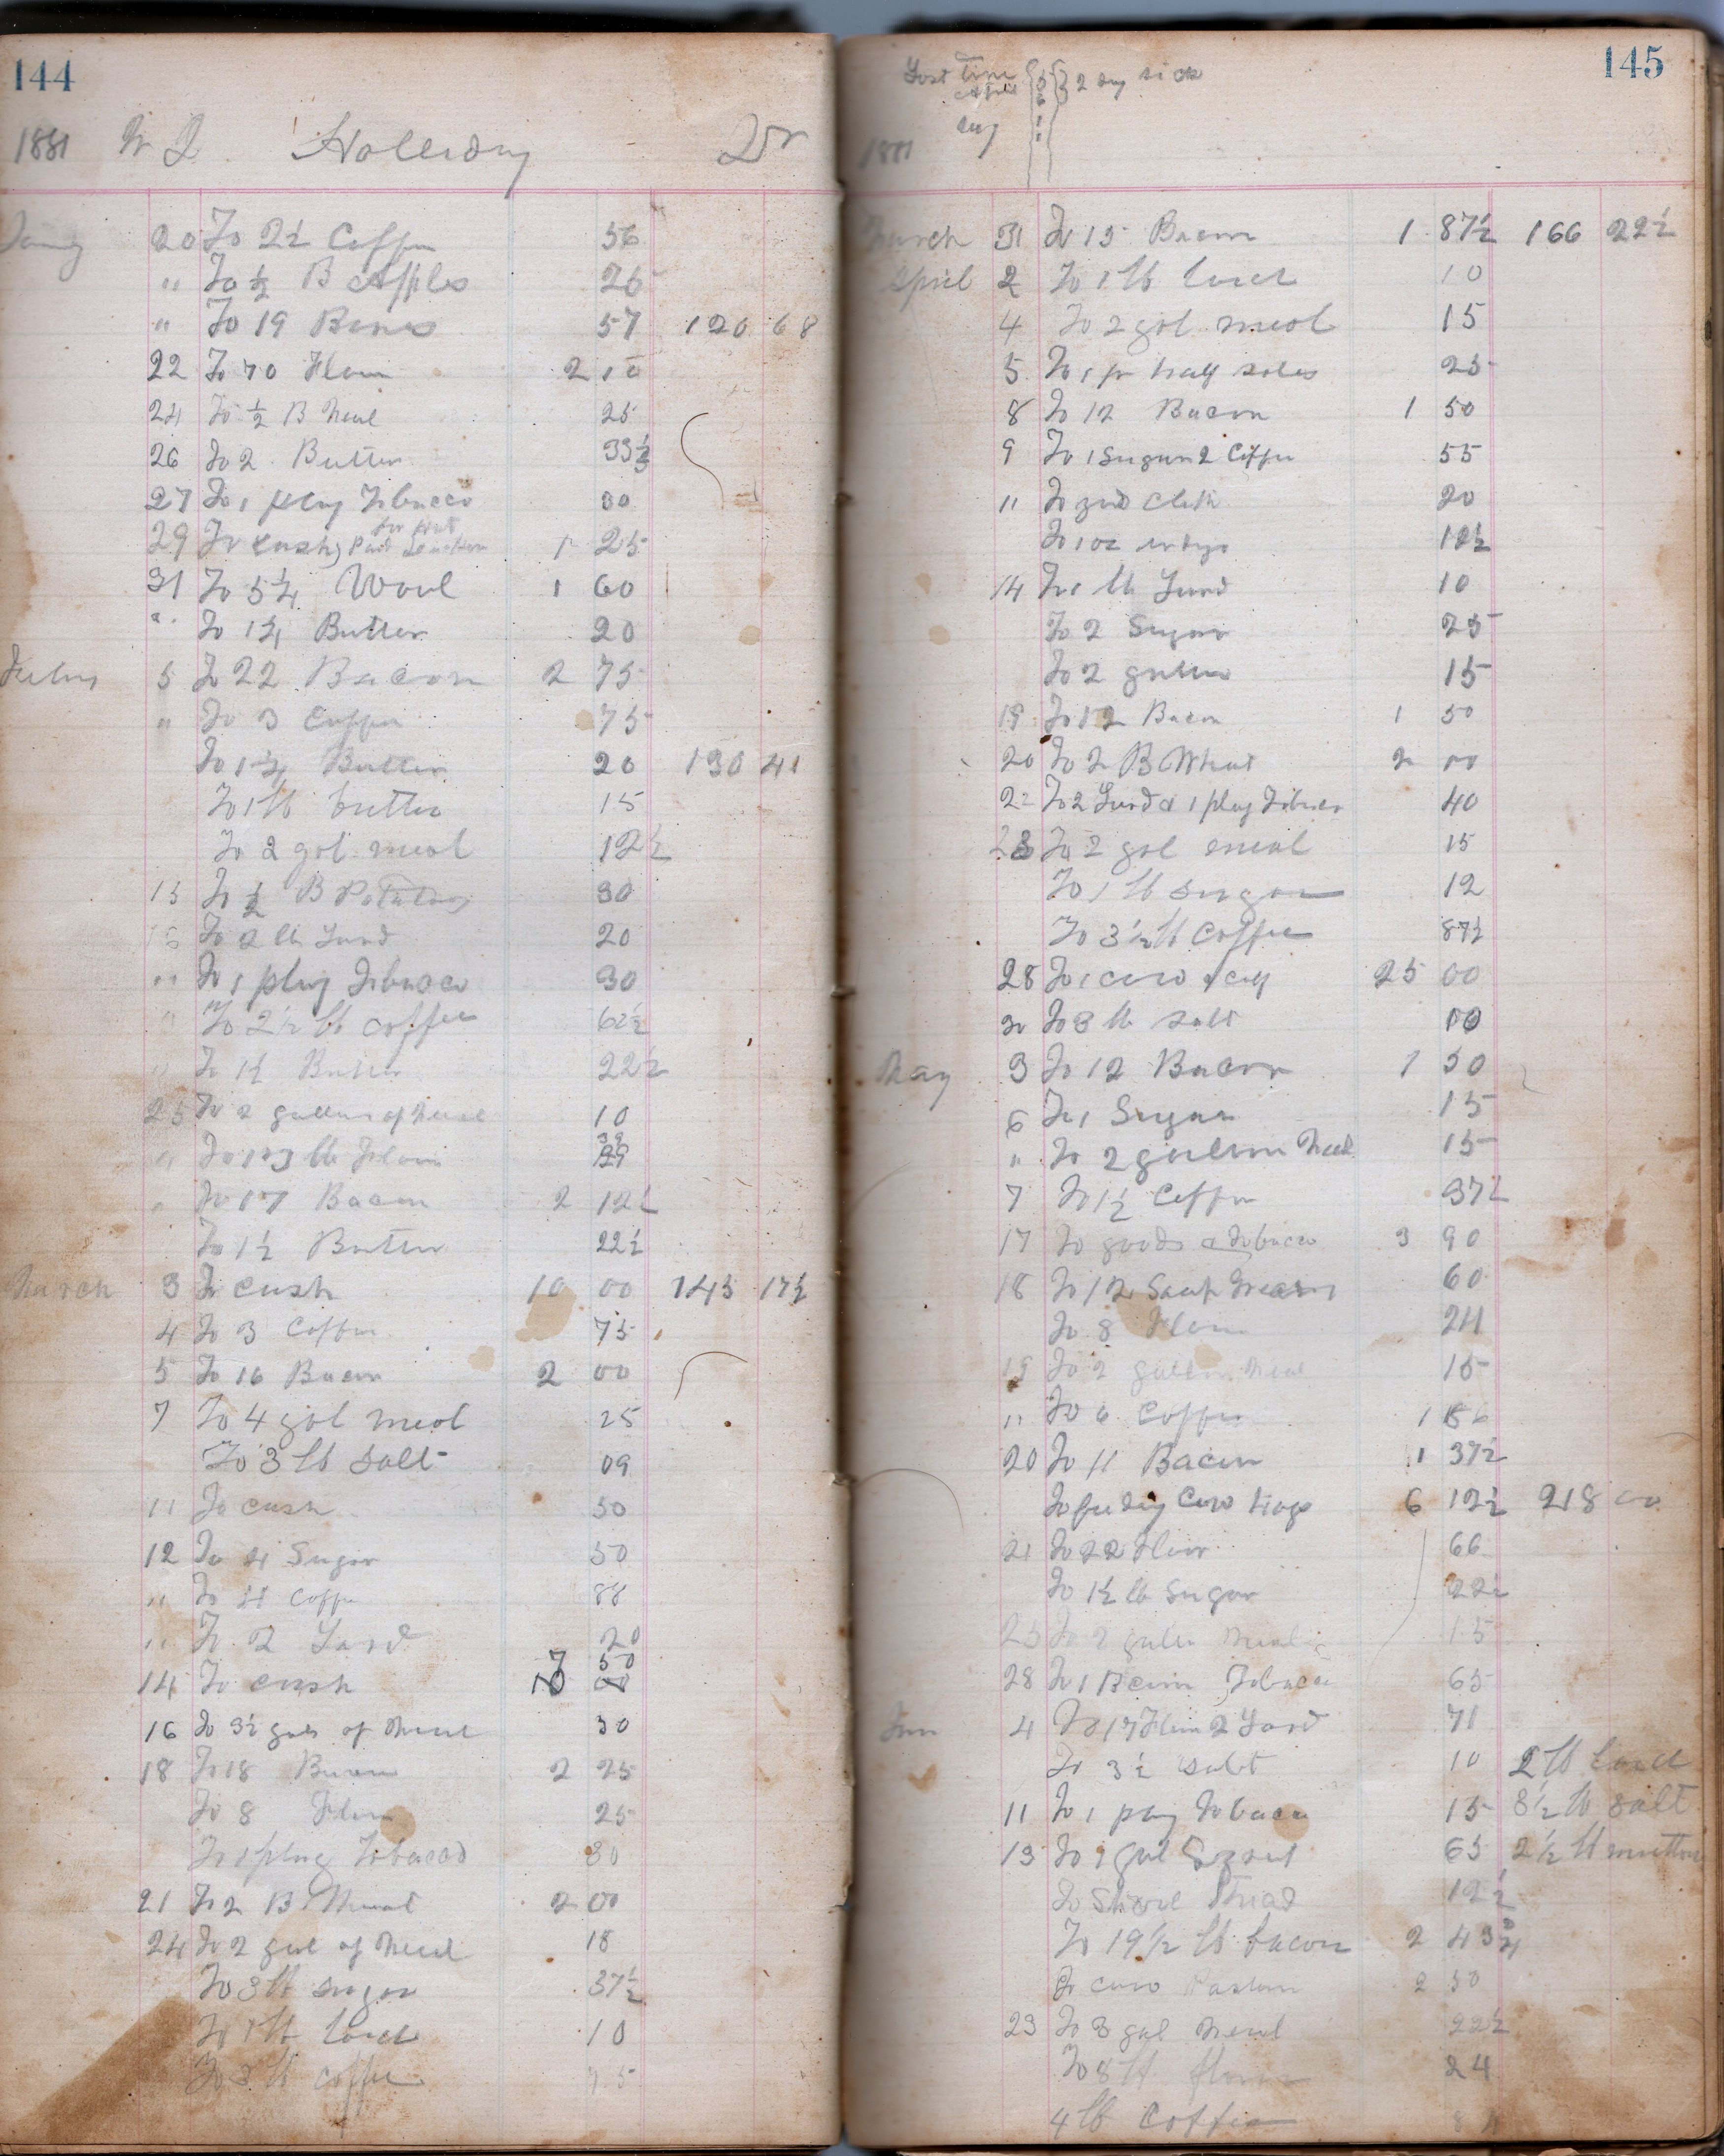 144
1881 Holliday Dr
20 To 2½ Coffee 56
" To ½ B Apples 25
" To 19 Beans 57 120 68
22 To 70 Flour 2 10
24 To ½ B Meal 25
26 To 2 Butter 33⅓
27 To 1 plug Tobacco 30
29 To cash 1 25
31 To 5¼ Wool 1 60
" To 1¼ Butter 20
5 To 22 Bacon 2 75
" To 3 Coffee 75
To 1¼ Butter 20 130 41
To 1 lb butter 15
To 2 gol meal 12½
13 To ½ B Potatoes 30
15 To 2 lb Lard 20
" To 1 plug Tobacco 30
To 2½ lb coffee 62½
" To 1½ Butter 22½
25 To 2 gallons of Meal 10
" To 13 lb Flour 39
" To 17 Bacon 2 12½
To 1½ Butter 22½
March 3 To cash 10 00 143 17½
4 To 3 Coffee 75
5 To 16 Bacon 2 00
7 To 4 gol meal 25
To 3 lb salt 09
11 To cash 50
12 To 4 Sugar 50
" To 4 Coffee 88
" To 2 Lard 20
14 To cash 7 50
16 To 3½ gals of Meal 30
18 To 18 Bacon 2 25
To 8 Flour 25
To 1 plug Tobacco 30
21 To 2 B Wheat 2 00
24 To 2 gal of Meal 18
To 3 lb sugar 37½
To 1 lb lard 10
To 3 lb coffee 75
145
Lost time April 5 6 2 day sick
Aug
1881
March 31 To 15 Bacon 1 87½ 166 22½
April 2 To 1 lb lard 10
4 To 2 gol meal 15
5 To 1 pr half soles 25
8 To 12 Bacon 1 50
9 To 1 Sugar 2 Coffee 55
11 To 2 yd Cloth 20
To 1 oz indigo 12½
14 To 1 lb Lard 10
To 2 Sugar 25
To 2 gallons 15
19 To 12 Bacon 1 50
20 To 2 B Wheat 2 00
22 To 2 Lard & 1 plug Tobacco 40
23 To 2 gol meal 15
To 1 lb sugar 12
To 3½ lb coffee 87½
28 To 1 cow & calf 25 00
30 To 3 lb salt 10
May 3 To 12 Bacon 1 50
6 To 1 Sugar 15
" To 2 gallon Meal 15
7 To 1½ Coffee 37½
17 To goods & Tobacco 3 90
18 To 12 Soap Grease 60
To 8 Flour 24
19 To 2 gallon Meal 15
" To 6 Coffee 1
20 To 11 Bacon 1 37½
To feeding Cow & hogs 6 12½ 218 00
21 To 22 Flour 66
To 1½ lb Sugar 22½
25 To 2 gallon Meal 15
28 To 1 Bacon Tobacco 65
4 To 17 Flour 2 Lard 71
To 3½ salt 10 2 lb lard
11 To 1 plug Tobacco 15 3½ lb salt
13 To 65 2½ lb mutton
Thread 12½
To 19½ lb bacon 2 43¾
To cow Pasture 2 50
23 To 3 gal Meal 22½
To 8 lb flour 24
4 lb coffee